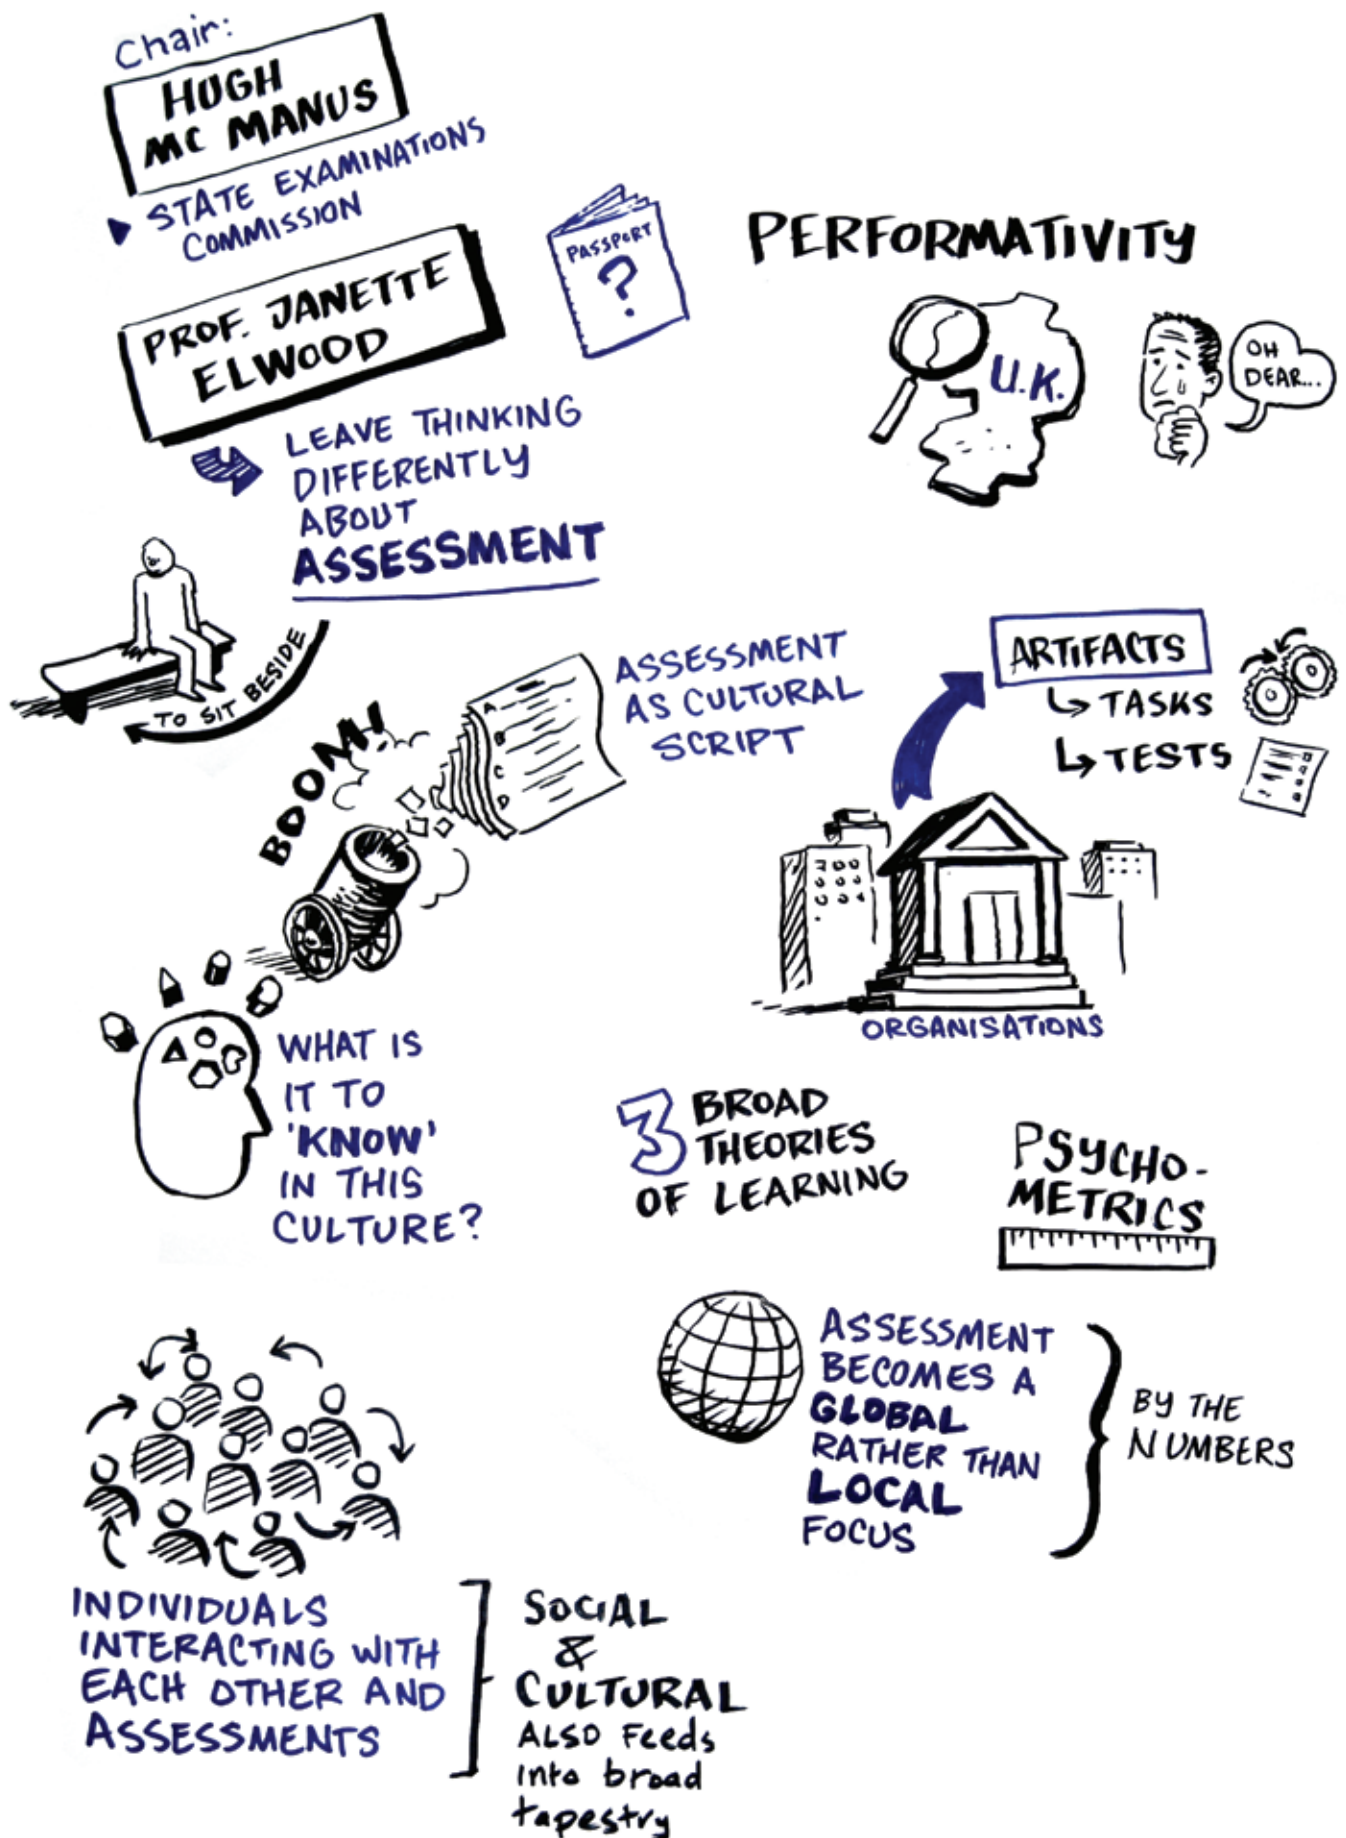 Chair:
HUGH
MC MANUS
STATE EXAMINATIONS
COMMISSION
PROF. JANETTE
ELWOOD
PASSPORT
?
LEAVE THINKING
DIFFERENTLY
ABOUT
ASSESSMENT
TO SIT BESIDE
PERFORMATIVITY
U.K.
OH
DEAR...
BOOM!
A
B
C
D
ASSESSMENT
AS CULTURAL
SCRIPT
ARTIFACTS
TASKS
TESTS
ORGANISATIONS
WHAT IS
IT TO
'KNOW'
IN THIS
CULTURE?
3 BROAD
THEORIES
OF LEARNING
PSYCHO-
METRICS
ASSESSMENT
BECOMES A
GLOBAL
RATHER THAN
LOCAL
FOCUS
BY THE
NUMBERS
INDIVIDUALS
INTERACTING WITH
EACH OTHER AND
ASSESSMENTS
SOCIAL
&
CULTURAL
ALSO FEEDS
into broad
tapestry